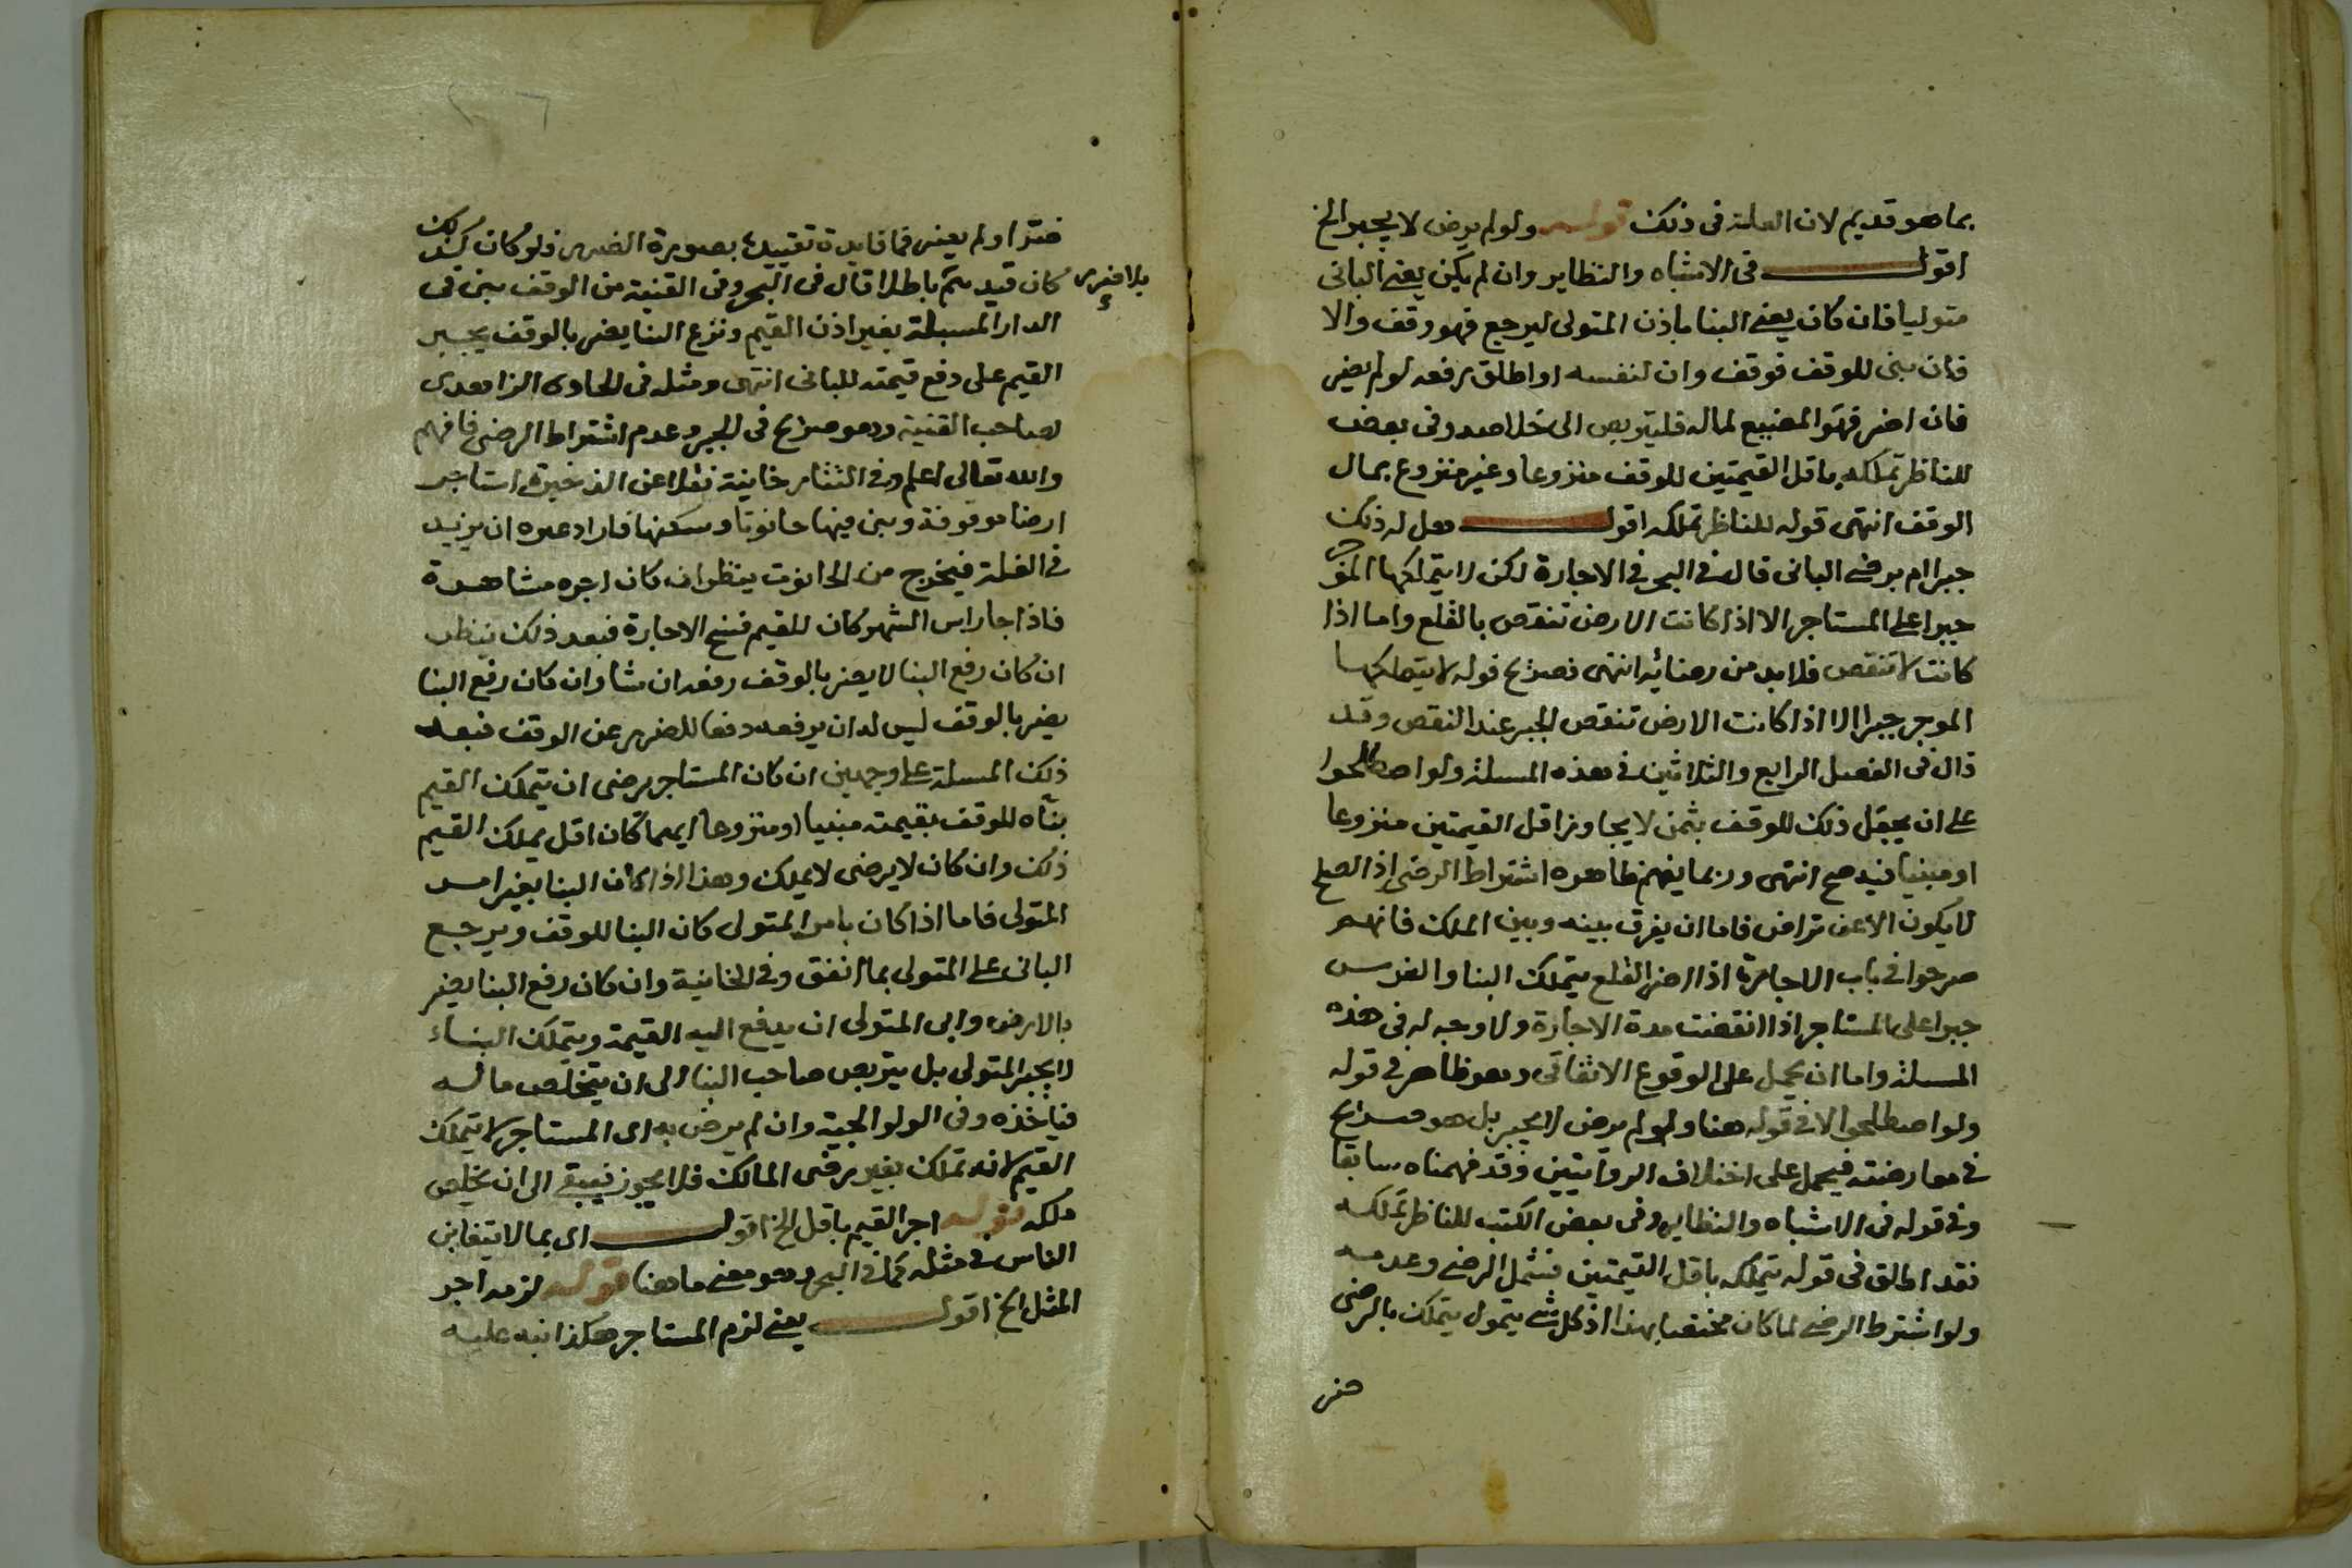 بما هو قديم لان العلة فى ذلك قوله ولو لم يرض لا يجبر الخ
اقول فى الاشباه والنظاير وان لم يكن يعنى البانى
متوليا فان كان يعنى البنا باذن المتولى ليرجع فهو وقف والا
فان بنى للوقف فوقف وان لنفسه او اطلق رفعه لو لم يضر
فان اضر فهو المضيع لماله فليتربص الى خلاصه وفى بعض
للناظر تملكه باقل القيمتين للوقف منزوعا وغير منزوع بمال
الوقف انتهى قوله للناظر تملكه اقول هل له ذلك
جبرا ام برضى البانى قال فى البحر فى الاجارة لكن لا يتملكها الموجر
جبرا على المستاجر الا اذا كانت الارض تنقص بالقلع واما اذا
كانت لا تنقص فلا بد من رضائه انتهى فصريح قوله لا يتملكها
الموجر جبرا الا اذا كانت الارض تنقص الجبر عند النقص وقد
قال فى الفصل الرابع والثلاثين فى هذه المسلة ولو اصطلحوا
على ان يجعل ذلك للوقف بثمن لا يجاوز اقل القيمتين منزوعا
او مبنيا فيه صح انتهى وربما يفهم ظاهره اشتراط الرضى اذ الصلح
لا يكون الا عن تراض فاما ان يفرق بينه وبين الملك فانهم
صرحوا فى باب الاجارة اذا اضر القلع يتملك البنا والغرس
جبرا على المستاجر اذا انقضت مدة الاجارة ولا وجه له فى هذه
المسلة واما ان يحمل على الوقوع الاتفاقى وهو ظاهر فى قوله
ولو اصطلحوا لا فى قوله هنا ولو لم يرض لا يجبر بل هو صريح
فى معارضته فيحمل على اختلاف الروايتين وقد فهمناه سابقا
وفى قوله فى الاشباه والنظاير وفى بعض الكتب للناظر تملكه
فقد اطلق فى قوله يتملكه باقل القيمتين فشمل الرضى وعدمه
ولو اشترط الرضى لما كان مختصا بهذا اذ كل شى يتمول يتملك بالرضى
ضر
ضترا ولم يعنى فما فايدة تقييده بصورة الضرر فلو كان كذلك
بلا ضرر كان قيد ثم باطلا قال فى البحر وفى القنية من الوقف بنى فى
الدار المسبلة بغير اذن القيم ونزع البنا يضر بالوقف يجبر
القيم على دفع قيمته للبانى انتهى ومثله فى الحاوى الزاهدى
لصاحب القنية وهو صريح فى الجبر وعدم اشتراط الرضى فافهم
والله تعالى اعلم وفى التتارخانية نقلا عن الذخيرة استاجر
ارضا موقوفة وبنى فيها حانوتا وسكنها فاراد غيره ان يزيد
فى الغلة فيخرج من الحانوت ينظر ان كان اجره مشاهرة
فاذا جا راس الشهر كان للقيم فسخ الاجارة فبعد ذلك ينظر
ان كان رفع البنا لا يضر بالوقف رفعه ان شا وان كان رفع البنا
يضر بالوقف ليس له ان يرفعه دفعا للضرر عن الوقف فبعد
ذلك المسلة على وجهين ان كان المستاجر يرضى ان يتملك القيم
بناه للوقف بقيمته مبنيا او منزوعا ايهما كان اقل يملك القيم
ذلك وان كان لا يرضى لا يملك وهذا اذا كان البنا بغير امر
المتولى فاما اذا كان بامر المتولى كان البنا للوقف ويرجع
البانى على المتولى بما انفق وفى الخانية وان كان رفع البنا يضر
بالارض وابى المتولى ان يدفع اليه القيمة ويتملك البناء
لا يجبر المتولى بل يتربص صاحب البنا الى ان يتخلص ماله
فياخذه وفى الولوالجية وان لم يرض به اى المستاجر لا يتملك
القيم لانه تملك بغير رضى المالك فلا يجوز فيبقى الى ان يخلص
ملكه قوله اجر القيم باقل الخ اقول اى بما لا يتغابن
الناس فى مثله كما فى البحر وهو معنى ما هنا قوله لزمه اجر
المثل الخ اقول يعنى لزم المستاجر هكذا نبه عليه